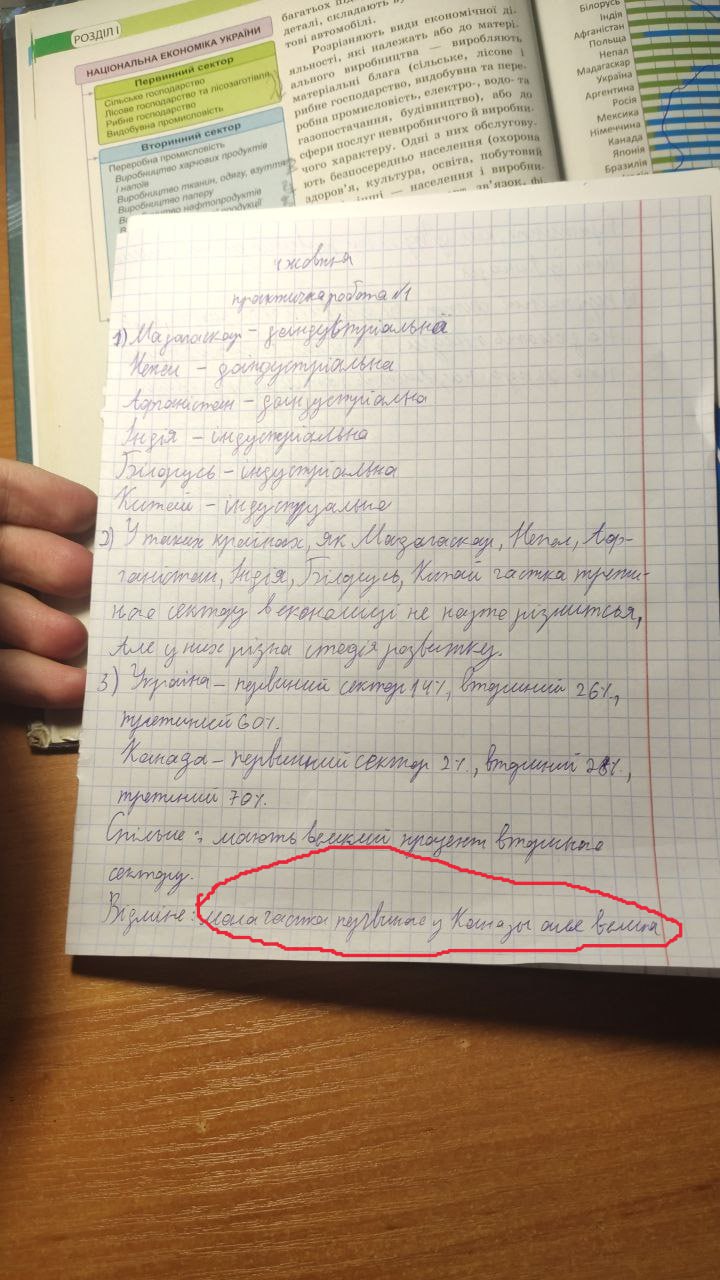 РОЗДІЛ І
НАЦІОНАЛЬНА ЕКОНОМІКА УКРАЇНИ
Первинний сектор
Сільське господарство
Лісове господарство та лісозаготівля
Рибне господарство
Видобувна промисловість
Вторинний сектор
Переробна промисловість
Виробництво харчових продуктів
і напоїв
Виробництво тканин, одягу, взуття
Виробництво паперу
нафтопродуктів
багатьох
деталі, складають
тові автомобілі.
Розрізняють види економічної ді-
яльності, які належать або до матері-
ального виробництва — виробляють
матеріальні блага (сільське, лісове і
рибне господарство, видобувна та пере-
робна промисловість, електро-, водо- та
газопостачання, будівництво), або до
сфери послуг невиробничого й виробни-
чого характеру. Одні з них обслугову-
ють безпосередньо населення (охорона
здоров'я, культура, освіта, побутовий
— населення і виробни-
зв'язок,
Білорусь
Індія
Афганістан
Польща
Непал
Мадагаскар
Україна
Аргентина
Росія
Мексика
Німеччина
Канада
Японія
Бразилія
жовтня
практична робота №1
1) Мадагаскар – доіндустріальна
Непал – доіндустріальна
Афганістан – доіндустріална
Індія – індустріальна
Білорусь – індустріальна
Китай – індустріальна
2) У таких країнах, як Мадагаскар, Непал, Аф-
ганістан, Індія, Білорусь, Китай частка трети-
ного сектору в економіці не надто різниться,
але у них різна стадія розвитку.
3) Україна – первиний сектор 14%, вторинний 26%,
третиний 60%.
Канада – первинний сектор 2%, вториний 28%,
третиний 70%.
Спільне: мають великий процент вториного
сектору.
Відміне: мала частка первиного у Канады але велика